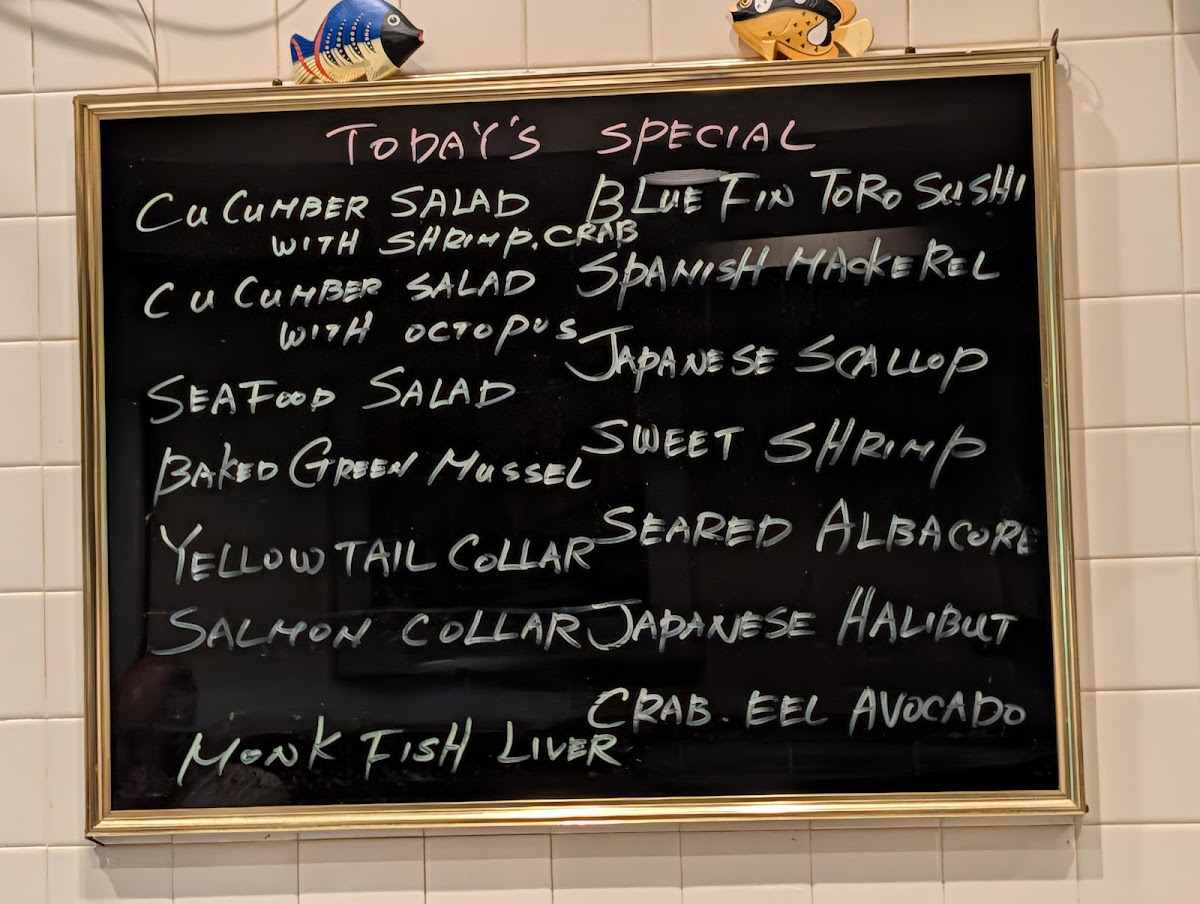 TODAY'S SPECIAL
CUCUMBER SALAD
WITH SHRIMP. CRAB
CUCUMBER SALAD
WITH OCTOPUS
SEAFOOD SALAD
BAKED GREEN MUSSEL
YELLOW TAIL COLLAR
SALMON COLLAR
MONK FISH LIVER
BLUE FIN TORO SUSHI
SPANISH MACKEREL
JAPANESE SCALLOP
SWEET SHRIMP
SEARED ALBACORE
JAPANESE HALIBUT
CRAB. EEL AVOCADO